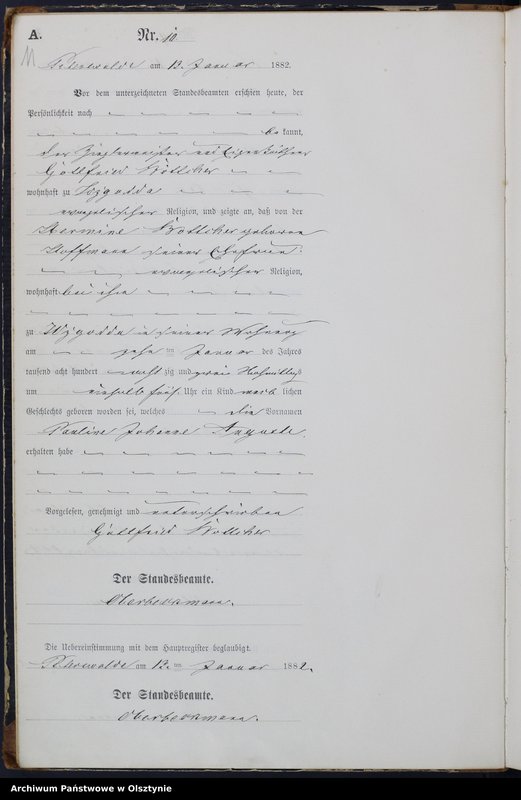 A.
Nr. 10
11
am 12. Januar 1882.
Vor dem unterzeichneten Standesbeamten erschien heute, der
Persönlichkeit nach
be kannt,
der Zieglermeister und Eigenkäthner
Gottfried Böttcher
wohnhaft zu Wzgodda
evangelischer Religion, und zeigte an, daß von der
Hermine Bottcher geborene
Hoffmann seiner Ehefrau
evangelischer Religion,
wohnhaft bei ihm
zu Wzgodda in seiner Wohnung
am zehn ten Januar des Jahres
tausend acht hundert acht zig und zwei Nachmittags
um Uhr ein Kind weib lichen
Geschlechts geboren worden sei, welches die Vornamen
Pauline Johanne Auguste
erhalten habe
Vorgelesen, genehmigt und unterschrieben
Gottfried Bottcher
Der Standesbeamte.
Oberbeckmann.
Die Uebereinstimmung mit dem Hauptregister beglaubigt.
am 12. ten Januar 1882.
Der Standesbeamte.
Oberbeckmann.
Archiwum Państwowe w Olsztynie